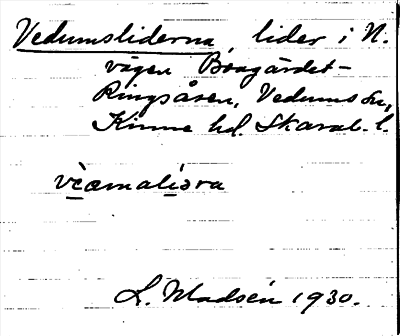 Vedumsliderna, lider i N.
vägen Brogärdet-
Ringsåsen, Vedums sn,
Kinne hd. Skarab. l.
vèəmalìəra
L. Madsén 1930.